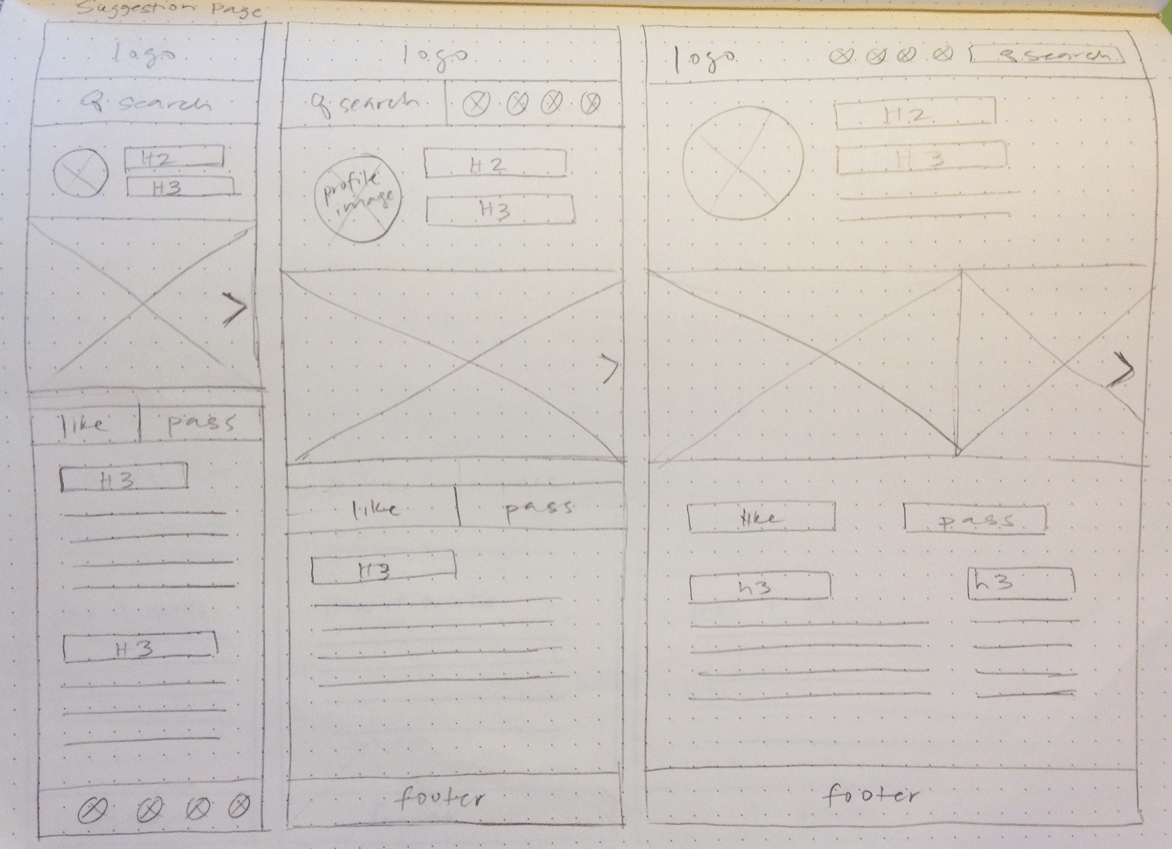 Suggestion Page
logo
Q search
H2
H3
like
pass
H3
H3
logo
Q search
profile
image
H2
H3
like
pass
H3
footer
logo
Q search
H2
H3
like
pass
h3
h3
footer